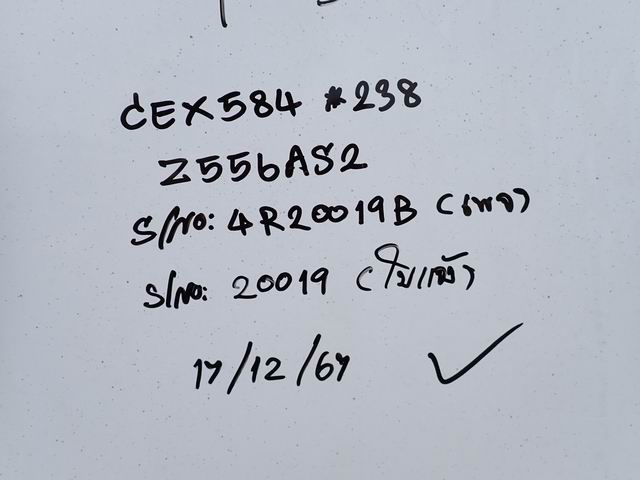 CEX584 *238
Z556AS2
S/No: 4R20019B (เพจ)
S/No: 20019 (ใบแจ้ง)
17/12/67 ✓